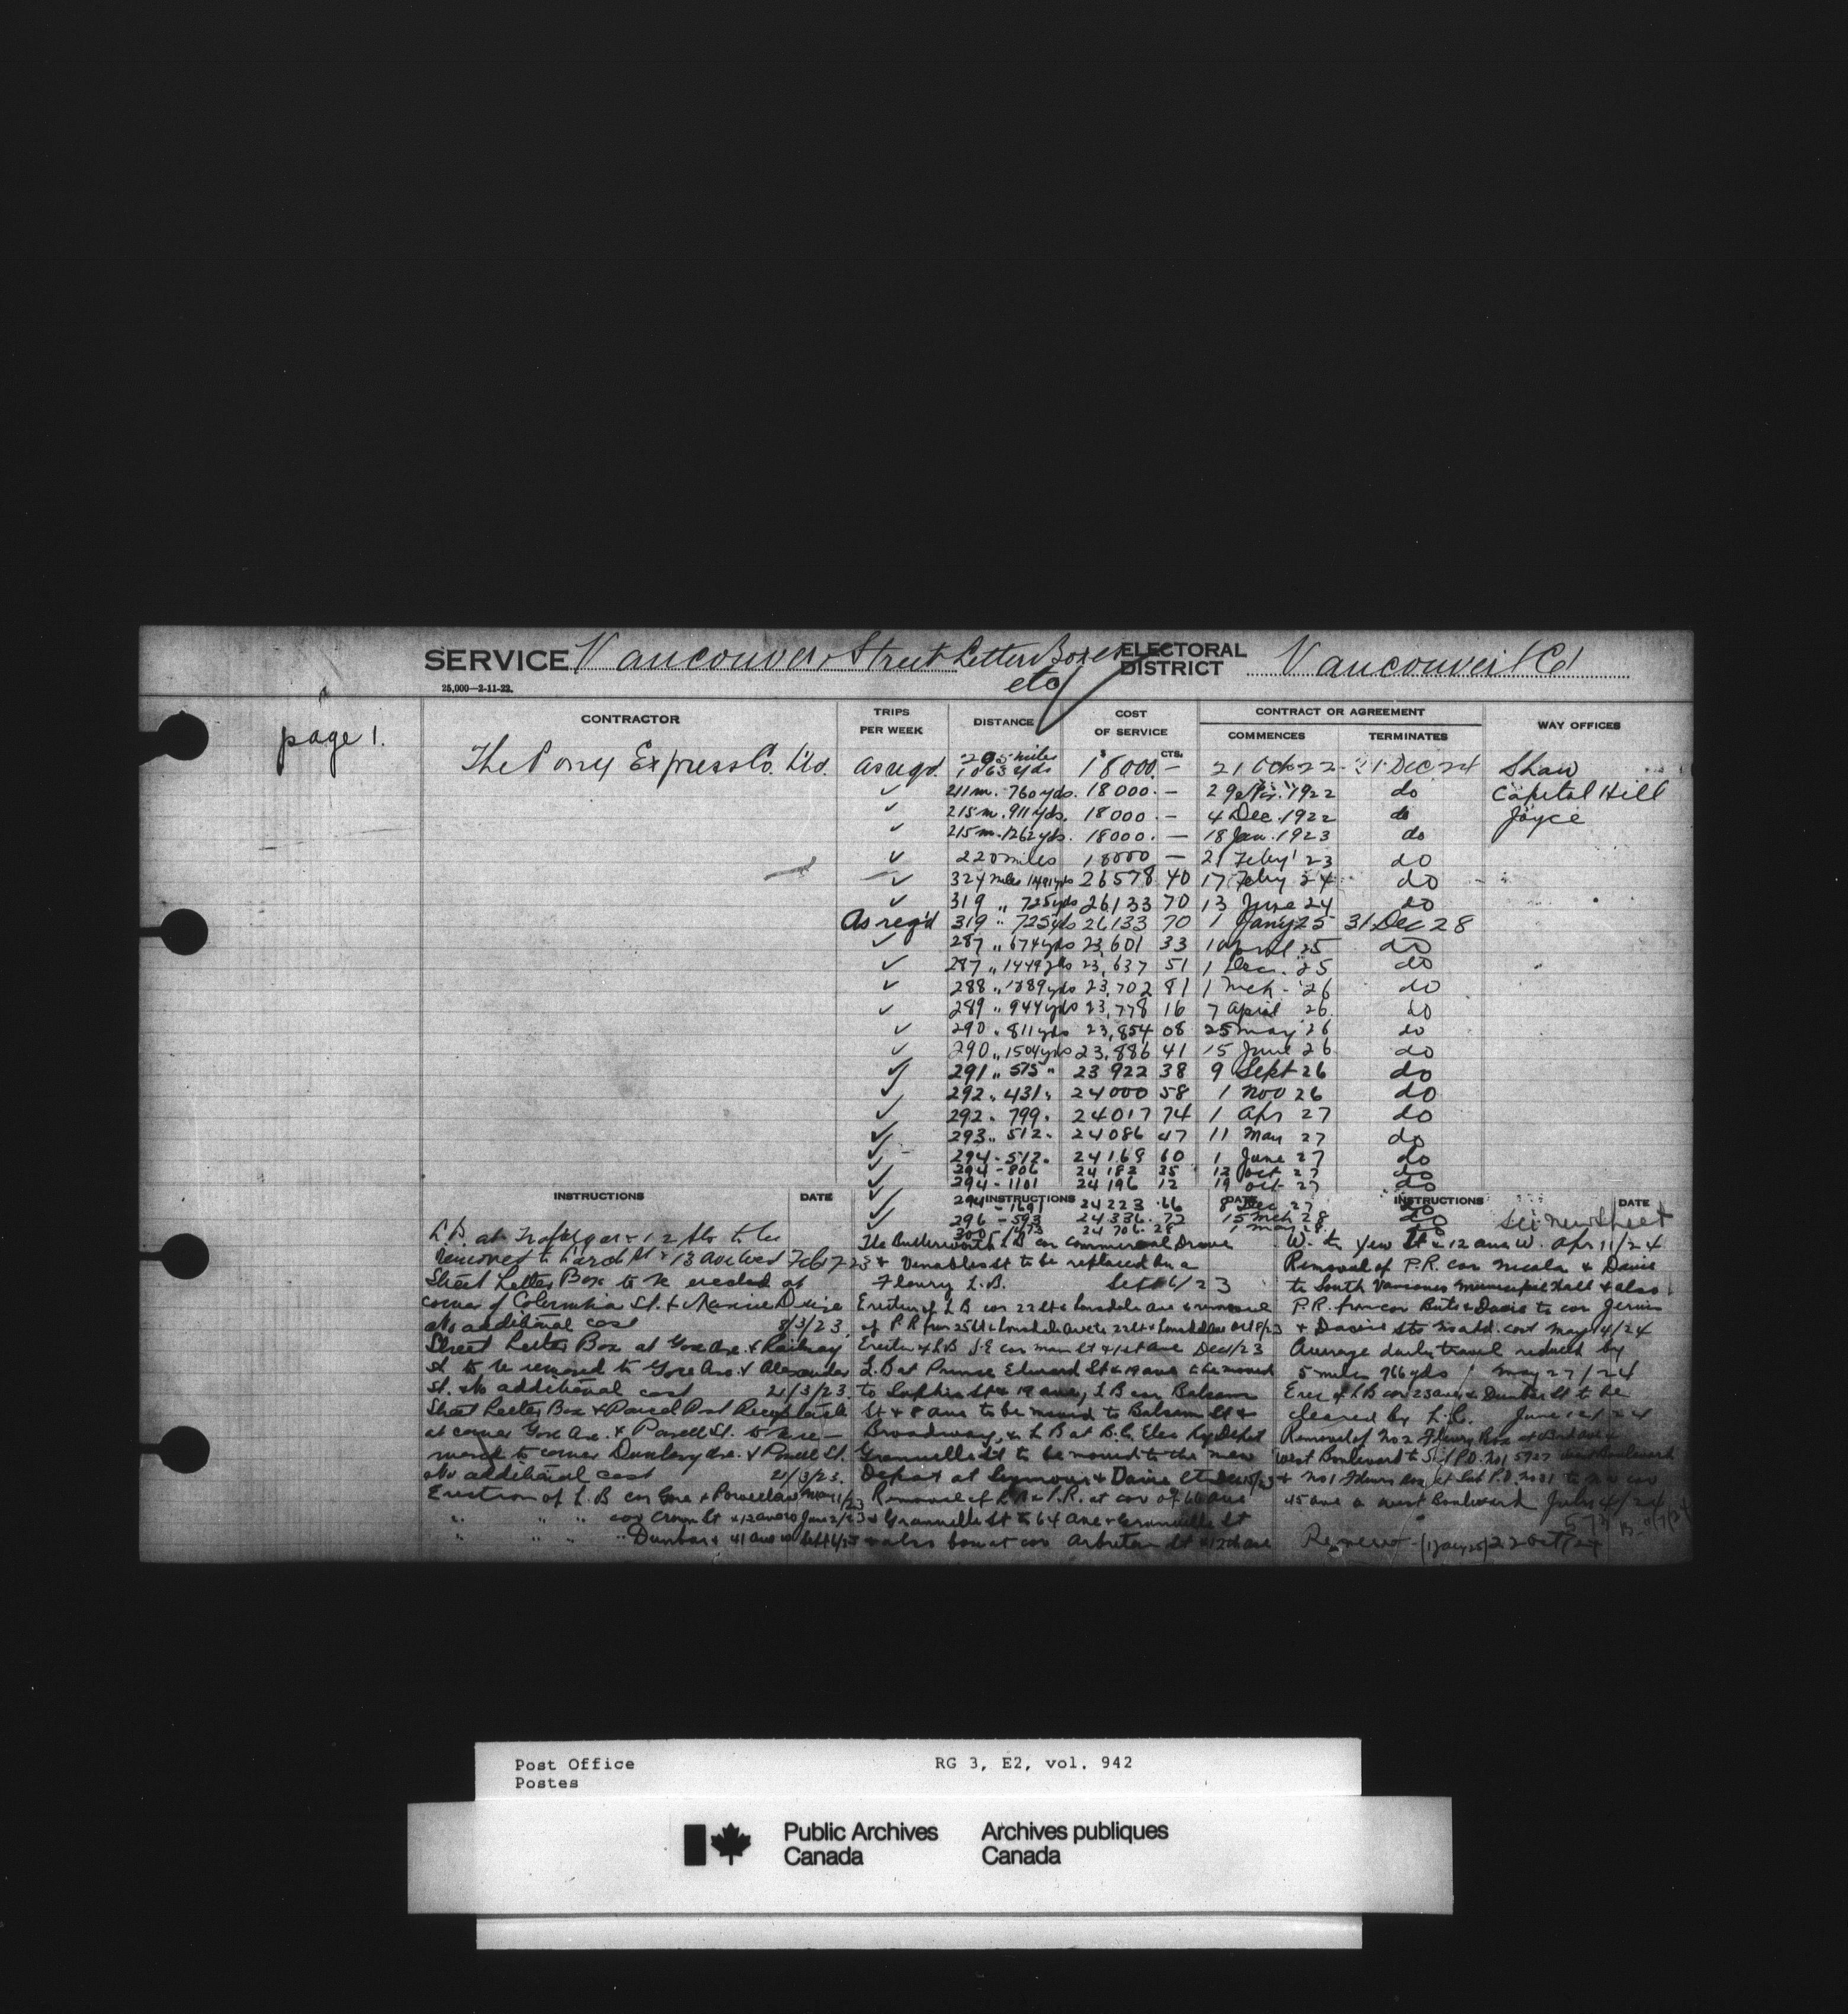 SERVICE Vancouver Street Letter Boxes etc ELECTORAL DISTRICT Vancouver Cd
25,000—2-11-22.
page 1.
CONTRACTOR TRIPS PER WEEK DISTANCE COST OF SERVICE CONTRACT OR AGREEMENT WAY OFFICES
COMMENCES TERMINATES
$ CTS.
The Pony Express Co. Ltd. As reqd. 205 miles 1063 yds 18000. — 21 Oct 22 31 Dec. 24 Shaw
✓ 211 m. 760 yds. 18000. — 29 1922 do Capitol Hill
✓ 215 m. 911 yds. 18000. — 4 Dec. 1922 do Joyce
✓ 215 m. 1262 yds. 18000. — 18 Jan. 1923 do
✓ 220 miles 18000 — 21 Feby' 23 do
✓ 324 miles 1491 yds 26578 40 17 Feby 24 do
✓ 319 " 725 yds 26,133 70 13 June 24 do
As req'd 319 " 725 yds 26133 70 1 Jany 25 31 Dec 28
✓ 287 " 674 yds 23,601 33 1 April 25 do
✓ 287 " 1449 yds 23,637 51 1 Dec. 25 do
✓ 288 " 1089 yds 23,702 81 1 Mch - '26 do
✓ 289 " 944 yds 23,778 16 7 April 26 do
✓ 290 " 811 yds 23,854 08 25 May 26 do
✓ 290 " 1504 yds 23,886 41 15 June 26 do
✓ 291 " 575 " 23 922 38 9 Sept 26 do
✓ 292 " 431 " 24000 58 1 Nov 26 do
✓ 292 " 799 " 24017 74 1 Apr 27 do
✓ 293 " 512 " 24086 47 11 May 27 do
✓ 294 - 512 " 24168 60 1 June 27 do
✓ 294 - 806 24 182 35 12 Oct 27 do
✓ 294 - 1101 24 196 12 19 Oct 27 do
INSTRUCTIONS DATE INSTRUCTIONS DATE INSTRUCTIONS DATE
✓ 294 - 1691 24223 .66 8 Dec 27 do
✓ 296 - 593 24336. 72 15 Mch 28 do
300 - 1473 24 706. 28 1 May 28. do See new Sheet
L.B. at Trafalgar & 12 Sts to be
removed to Larch St & 13 Ave West Feb 7 23
Street Letter Box to be erected at
corner of Columbia St. & Marine Drive
No additional cost 8/3/23.
Street Letter Box at Gore Ave. & Railway
St to be removed to Gore Ave. & Alexander
St. No additional cost 21/3/23.
Street Letter Box & Parcel Post Receptacle
at corner Gore Ave. & Powell St. to be re-
moved to corner Dunlevy Ave. & Powell St.
No additional cost 21/3/23.
Erection of L.B cor Gore & Powell May 11/23
" " " cor Crown St & 12 Ave W June 2/23
" " " Dunbar & 41 Ave W Sept 4/23
The Butterworth L B cor Commercial Drive
& Venables St to be replaced by a
Fleury L.B. Sept 6/23
Erection of L B cor 22 St & Lonsdale Ave & removal
of P.R from 25 St & Lonsdale Ave to 22 St & Lonsdale Ave Oct 8/23
Erection of L B S.E cor Main St & 1st Ave Dec 1/23
L.B at Prince Edward St & 19 Ave to be moved
to Sophia St & 19 Ave, L B cor Balsam
St & 8 Ave to be moved to Balsam St &
Broadway, & L B at B.C. Elec Ry Depot
Granville St to be moved to the new
Depot at Seymour & Davie St
Removal of L B & P.R. at cor of 66 Ave
& Granville St to 64 Ave & Granville St
& also box at cor Arbutus St & 12th Ave
W. to Yew St & 12 Ave W. Apr 11/24
Removal of P.R. cor Nicola & Davie
to South Vancouver Municipal Hall & also
P.R. from cor Bute & Davie to cor Jervis
& Davie Sts No add. cost May 14/24
Average daily travel reduced by
5 miles 766 yds May 27/24
Erec of L B cor 23 Ave & Dunbar St to be
cleared by L.C. June 12/24
Removal of No 2 Fleury Box at
West Boulevard to S/P.O. No 1 5927 West Boulevard
& No 1 Fleury Box at Sub P.O. No 21 to cor
45 Ave & West Boulevard July 4/24
Renewed (1 Jany 25) 22 Oct/24
Post Office RG 3, E2, vol. 942
Postes
Public Archives Archives publiques
Canada Canada